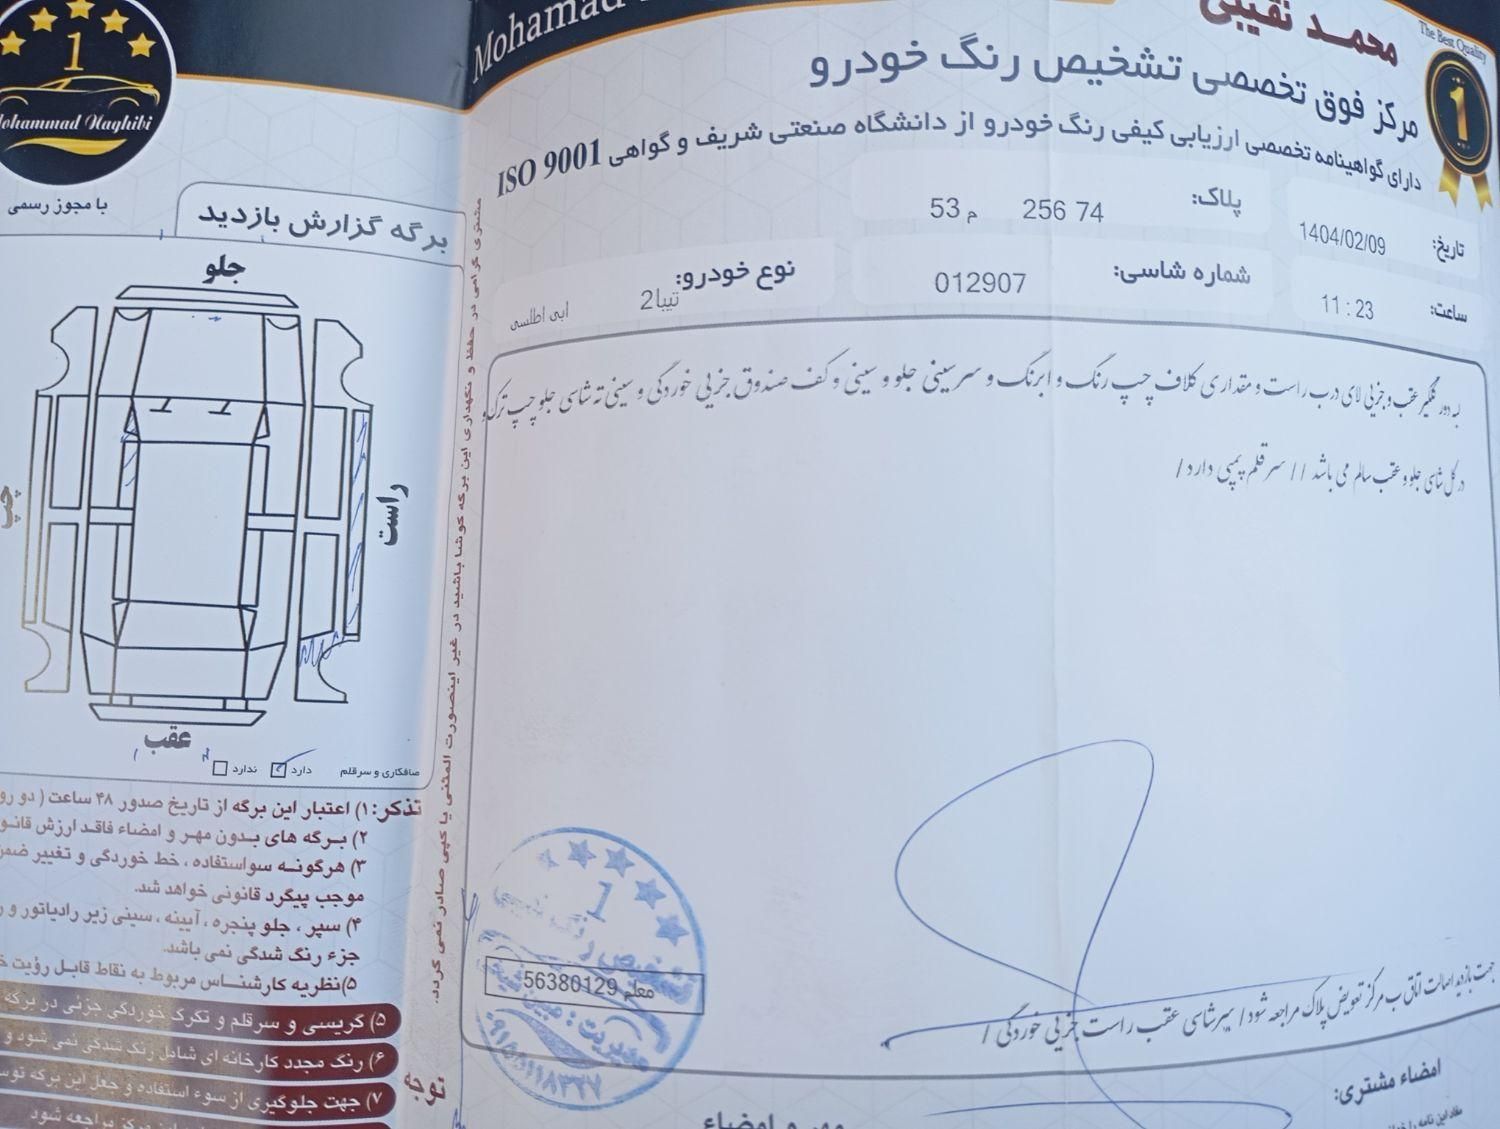 محمد نقیبی
The Best Quality
1
مرکز فوق تخصصی تشخیص رنگ خودرو
دارای گواهینامه تخصصی ارزیابی کیفی رنگ خودرو از دانشگاه صنعتی شریف و گواهی ISO 9001
تاریخ: 1404/02/09
پلاک: 53 م 256 74
ساعت: 11 : 23
شماره شاسی: 012907
نوع خودرو: تیبا2 ابی اطلسی
لبه دور گلگیر عقب و جزیی لای درب راست و مقداری کلاف چپ رنگ و ابرنگ و سرسینی جلو و سینی و کف صندوق جزیی خوردگی و سینی ته شاسی جلو چپ ترک و
در کل شاسی جلو و عقب سالم می باشد // سر قلم پمپی دارد /
جهت بازدید اصالت اتاق ب مرکز تعویض پلاک مراجعه شود / سپر شاسی عقب راست جزیی خوردگی /
معلم 56380129
امضاء مشتری:
مهر و امضاء
1
Mohammad Naghibi
با مجوز رسمی
برگه گزارش بازدید
جلو
راست
چپ
عقب
صافکاری و سرقلم دارد ندارد
مشتری گرامی در حفظ و نگهداری این برگه کوشا باشید در غیر اینصورت المثنی یا کپی صادر نمی گردد.
تذکر: ۱) اعتبار این برگه از تاریخ صدور ۴۸ ساعت ( دو
۲) برگه های بدون مهر و امضاء فاقد ارزش
۳) هرگونه سواستفاده ، خط خوردگی و تغییر
موجب پیگرد قانونی خواهد شد.
۴) سپر ، جلو پنجره ، آیینه ، سینی زیر رادیاتور و
جزء رنگ شدگی نمی باشد.
۵) نظریه کارشناس مربوط به نقاط قابل رؤیت
۵) گریسی و سرقلم و تکرک خوردگی جزئی در برگه
۶) رنگ مجدد کارخانه ای شامل رنگ شدگی نمی شود و
۷) جهت جلوگیری از سوء استفاده و جعل این برگه
مرکز مراجعه شود
توجه